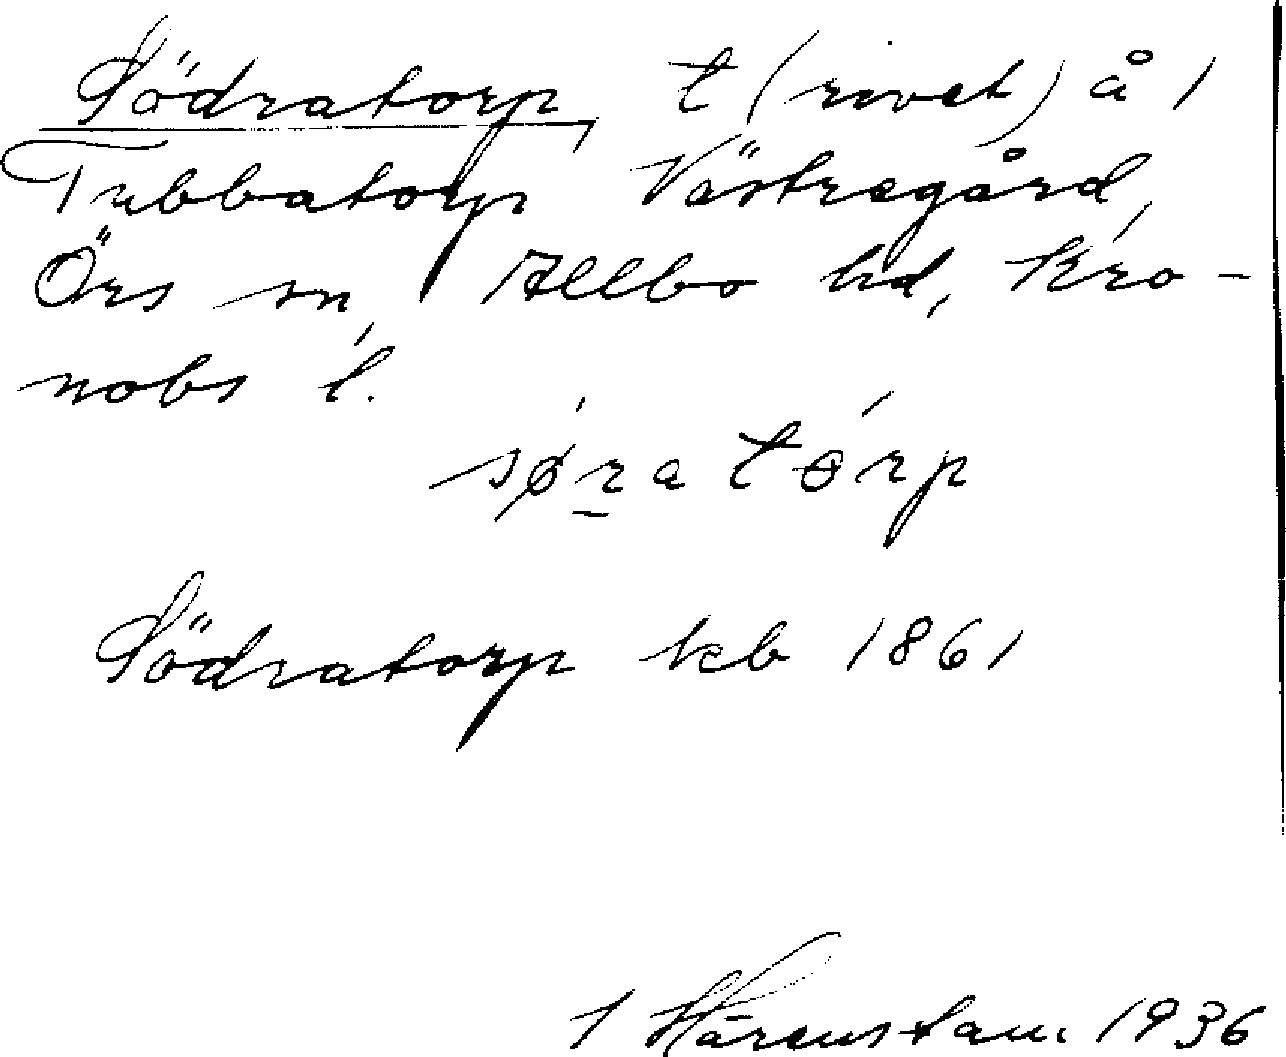 Södratorp, t (rivet) å 1
Tubbatorp Västregård,
Örs sn, Allbo hd, Kro-
nobs l.
sǿratórp
Södratorp kb 1861
1 Härenstam 1936